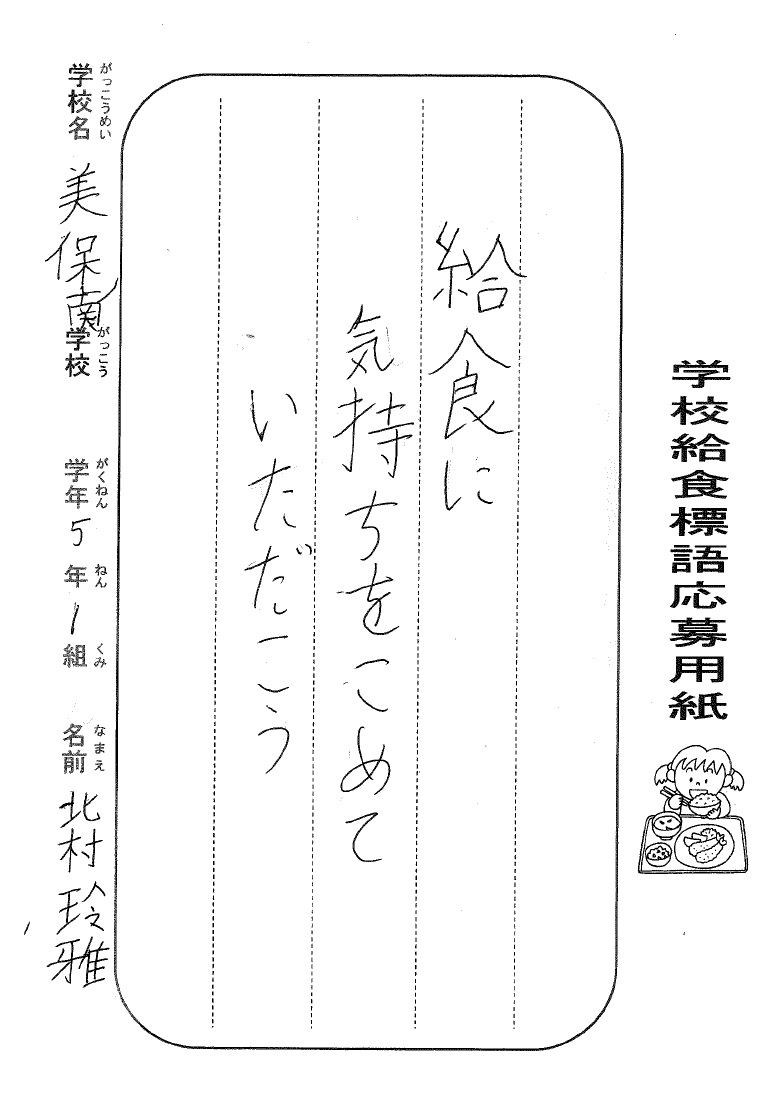 学校給食標語応募用紙
給食に
気持ちをこめて
いただこう
がっこうめい
学校名 美保南学校
がっこう
がくねん ねん くみ
学年 5年 1組
なまえ
名前 北村 玲雅